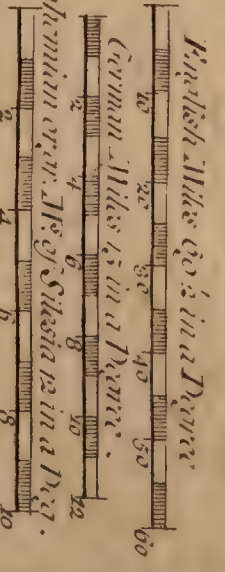 English Miles in a Degree
10 20 30 40 50 60
German Miles 15 in a Degree.
2 4 6 8 10 12
hemian or gr. Ms. of Silesia 12 in a Deg.
2 4 6 8 10